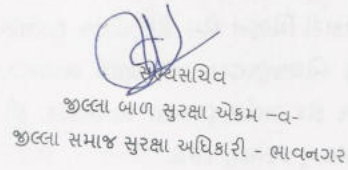 સભ્યસચિવ
જીલ્લા બાળ સુરક્ષા એકમ –વ-
જીલ્લા સમાજ સુરક્ષા અધિકારી - ભાવનગર